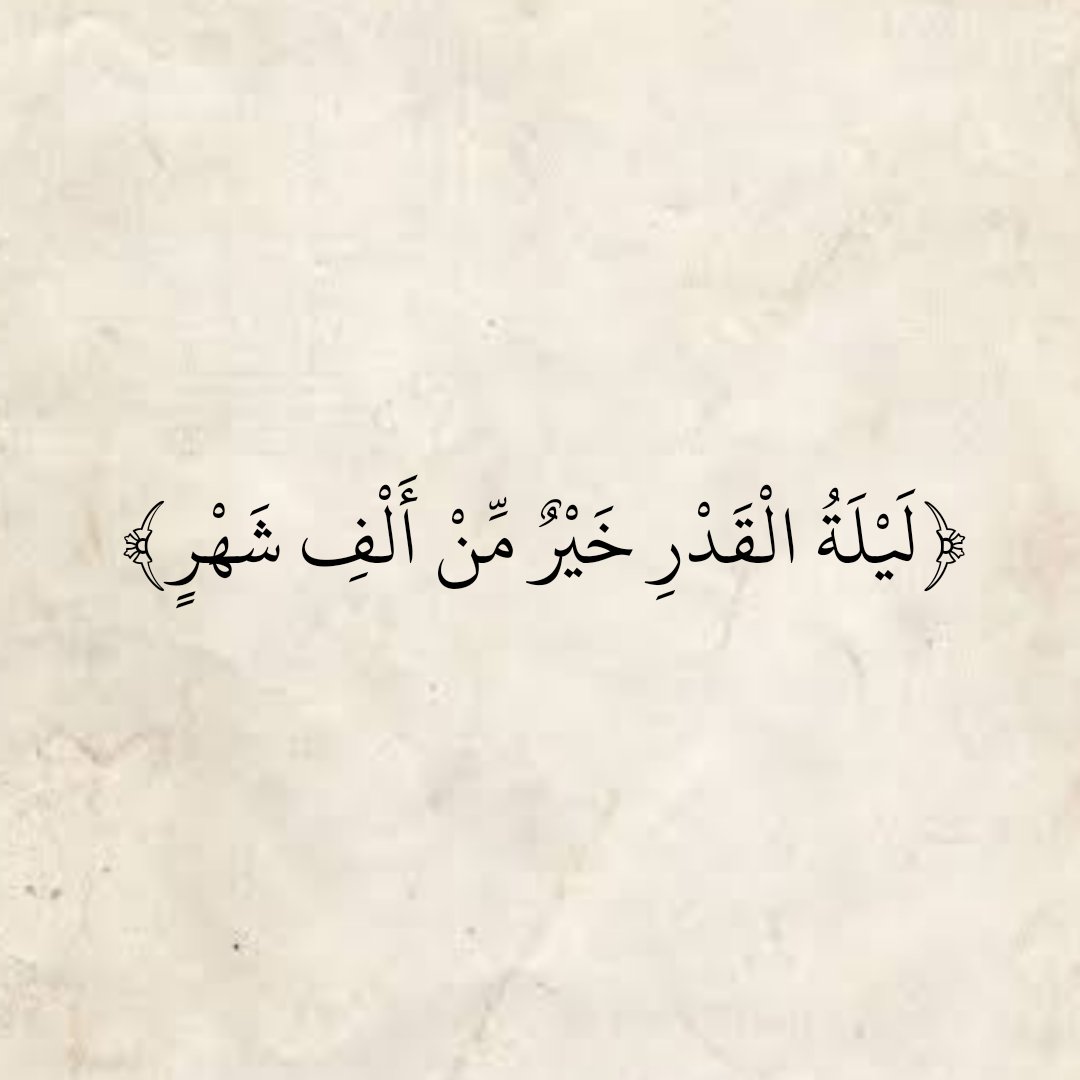 ﴿لَيْلَةُ الْقَدْرِ خَيْرٌ مِّنْ أَلْفِ شَهْرٍ﴾